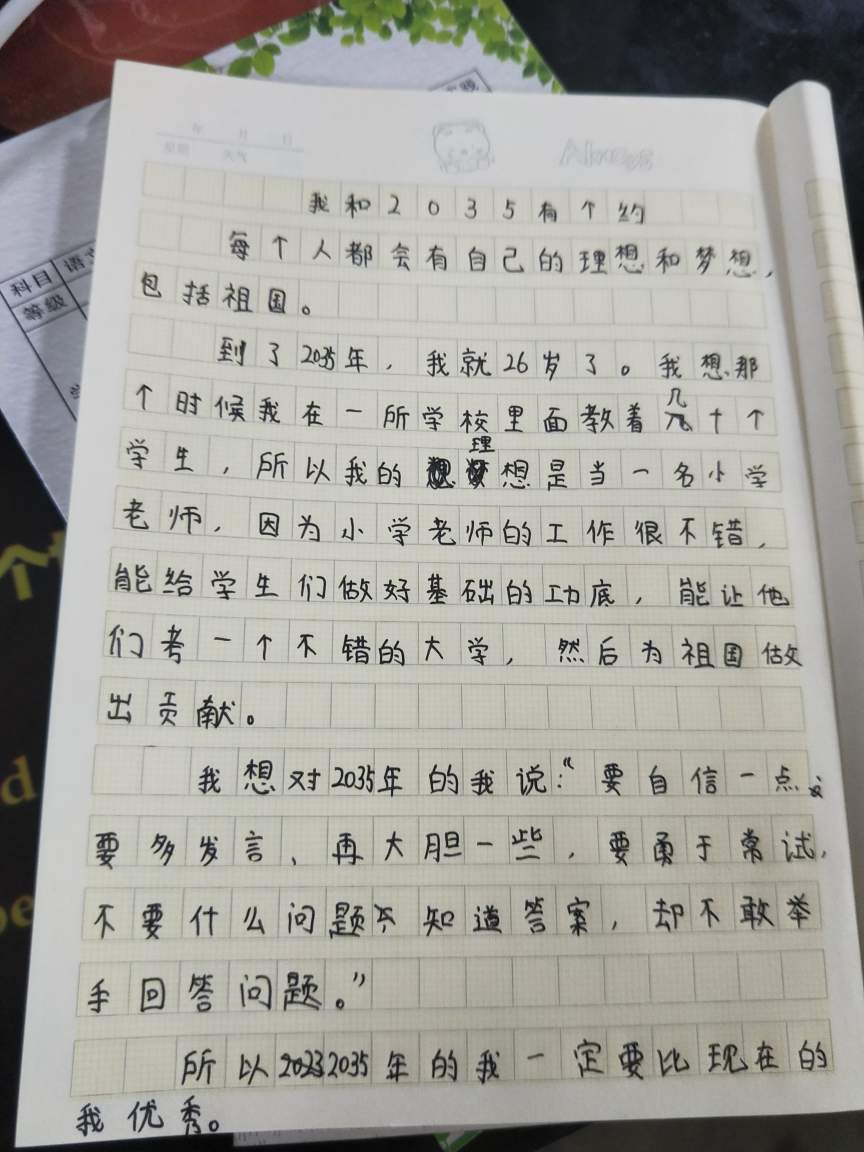 年 月 日
星期 天气
Always
科目 语文
等级
我和2035有个约
每个人都会有自己的理想和梦想,
包括祖国。
到了2035年,我就26岁了。我想,那
个时候我在一所学校里面教着几十个
学生,所以我的理想是当一名小学
老师,因为小学老师的工作很不错,
能给学生们做好基础的功底,能让他
们考一个不错的大学,然后为祖国做
出贡献。
我想对2035年的我说:“要自信一点,
要多发言、再大胆一些,要勇于常试,
不要什么问题不知道答案,却不敢举
手回答问题。”
所以20232035年的我一定要比现在的
我优秀。